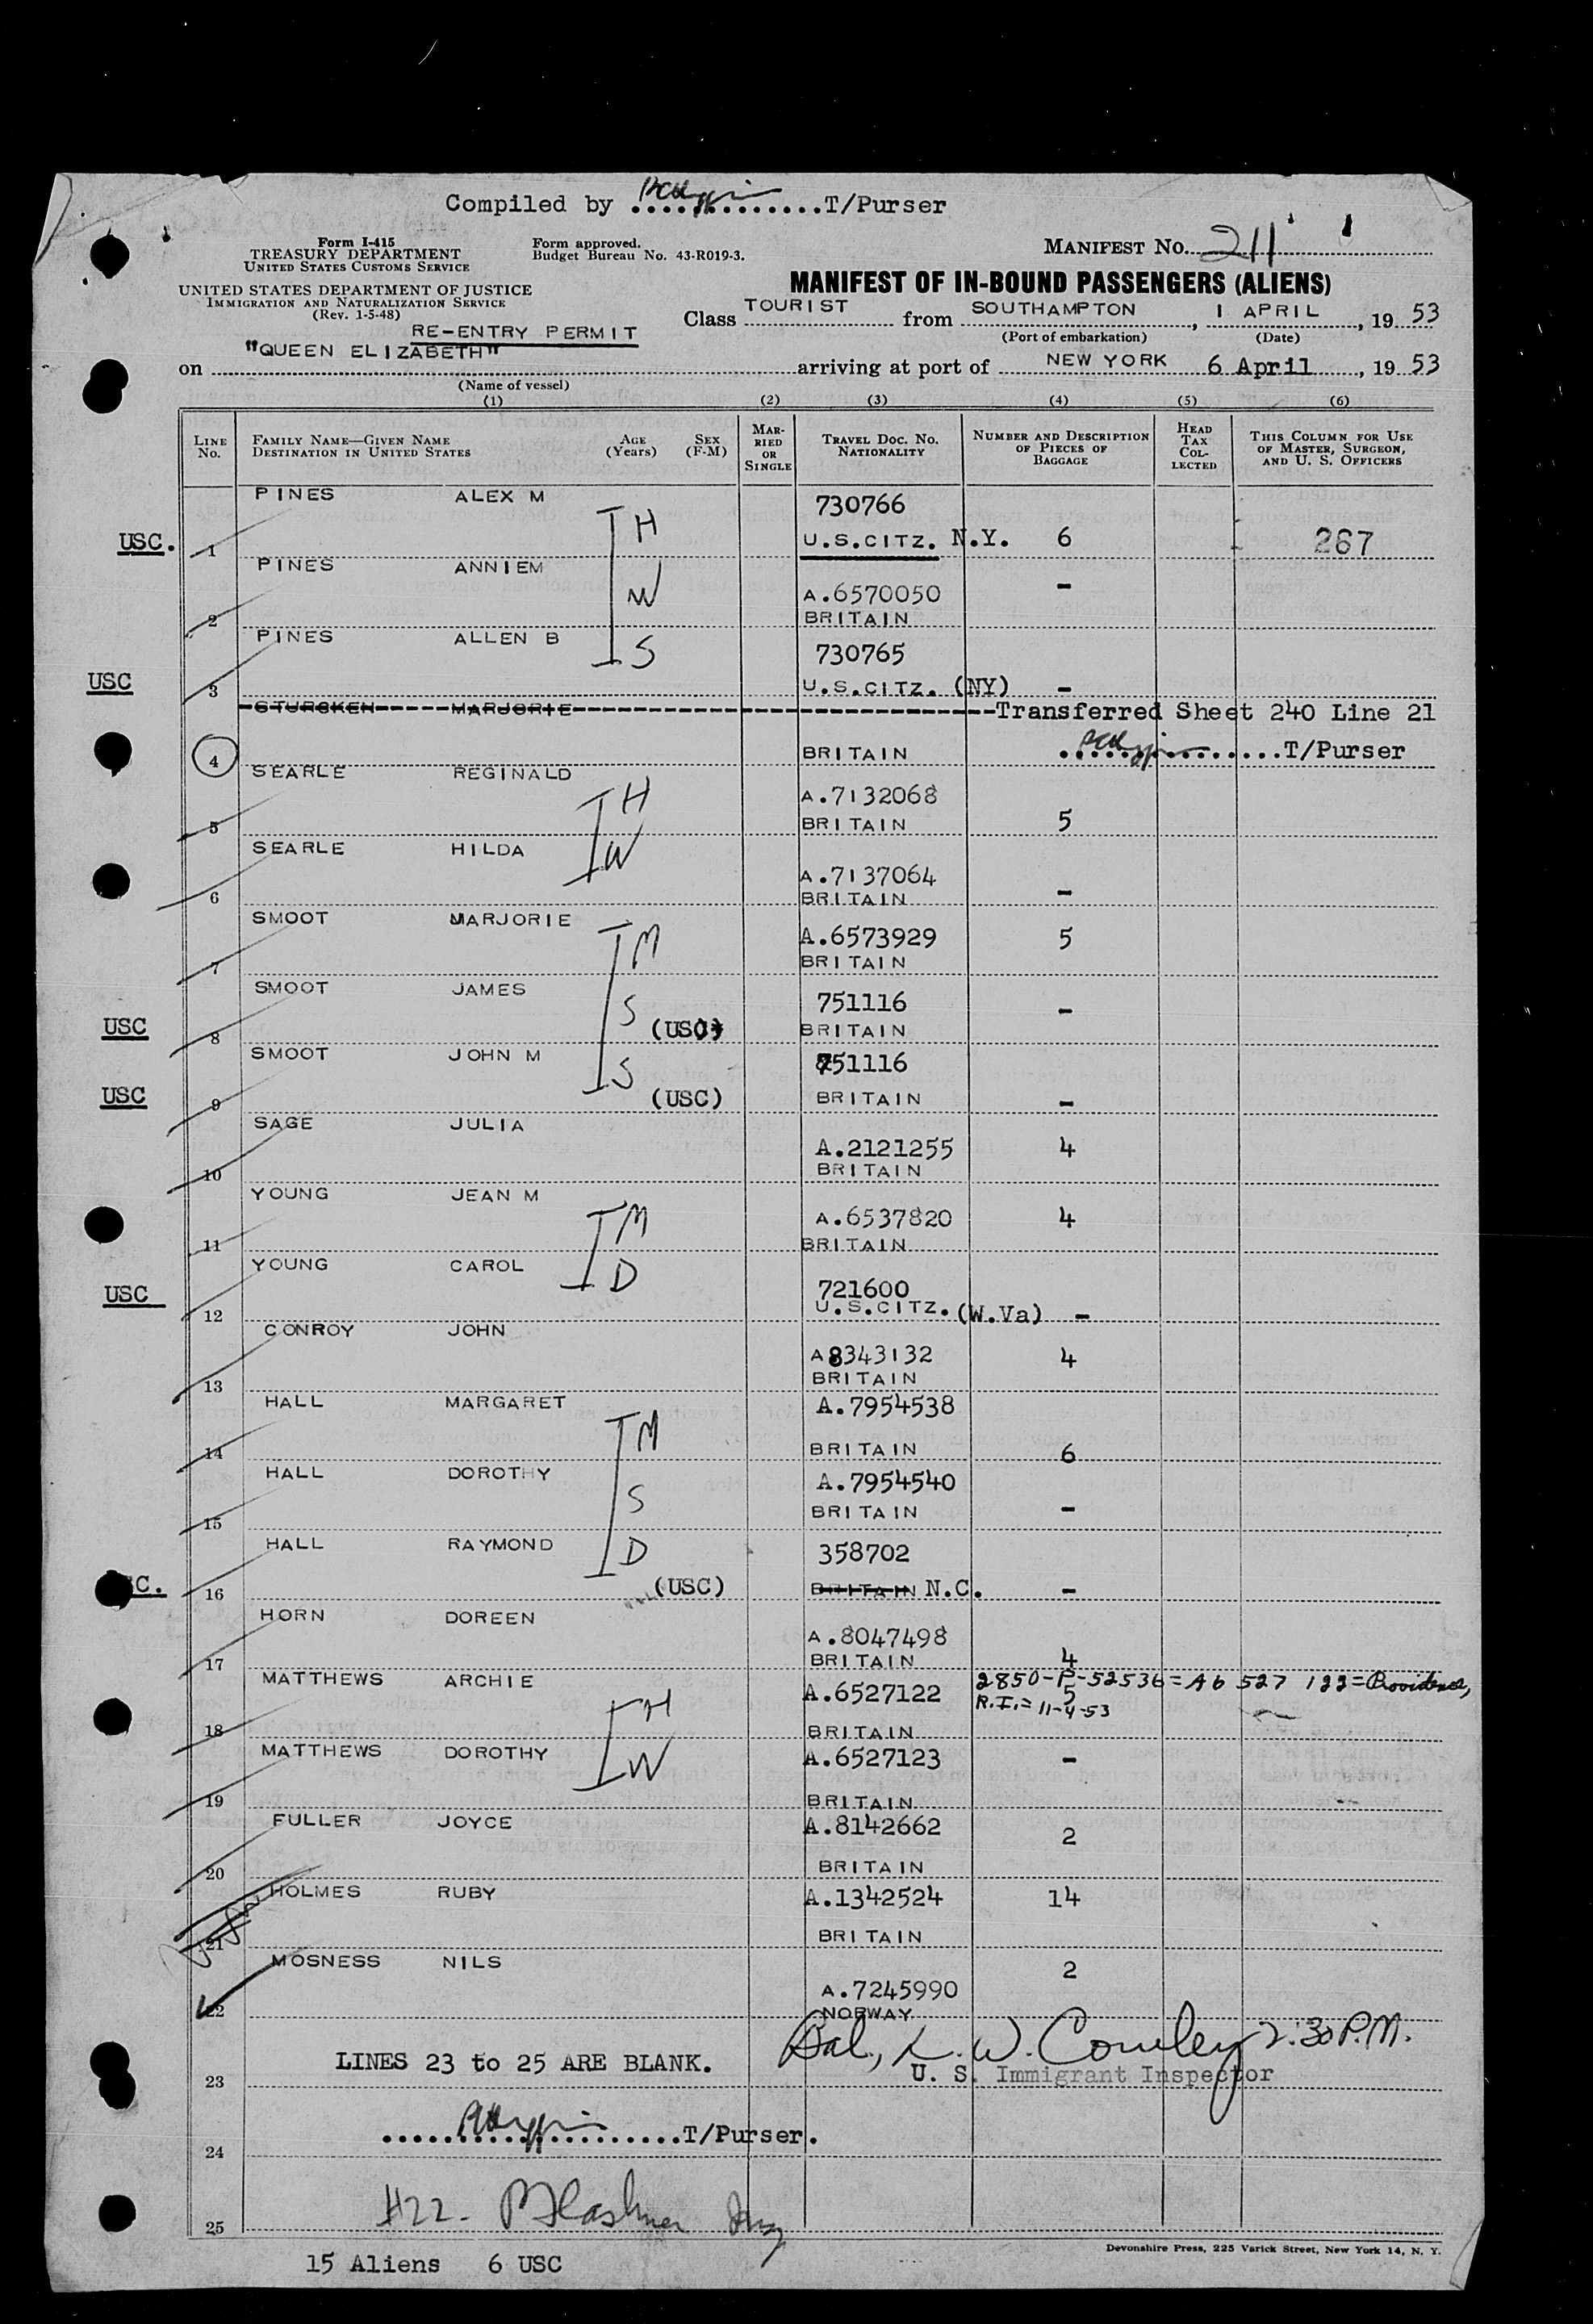 Compiled by ..............T/Purser
Form I-415
TREASURY DEPARTMENT
UNITED STATES CUSTOMS SERVICE
Form approved.
Budget Bureau No. 43-R019-3.
MANIFEST No. 211
UNITED STATES DEPARTMENT OF JUSTICE
IMMIGRATION AND NATURALIZATION SERVICE
(Rev. 1-5-48)
MANIFEST OF IN-BOUND PASSENGERS (ALIENS)
RE-ENTRY PERMIT
Class TOURIST from SOUTHAMPTON, 1 APRIL, 19 53
(Port of embarkation) (Date)
on "QUEEN ELIZABETH" arriving at port of NEW YORK 6 April, 19 53
(Name of vessel)
(1) (2) (3) (4) (5) (6)
LINE No. FAMILY NAME—GIVEN NAME DESTINATION IN UNITED STATES AGE (Years) SEX (F-M) MARRIED OR SINGLE TRAVEL DOC. NO. NATIONALITY NUMBER AND DESCRIPTION OF PIECES OF BAGGAGE HEAD TAX COLLECTED THIS COLUMN FOR USE OF MASTER, SURGEON, AND U. S. OFFICERS
PINES ALEX M 730766
USC. 1 H U.S.CITZ. N.Y. 6 267
PINES ANNIEM
2 W A.6570050 BRITAIN -
PINES ALLEN B S 730765
USC 3 U.S.CITZ. (NY) -
STURCKEN MARJORIE Transferred Sheet 240 Line 21
4 BRITAIN ................T/Purser
SEARLE REGINALD H A.7132068
5 BRITAIN 5
SEARLE HILDA W A.7137064
6 BRITAIN -
SMOOT MARJORIE M A.6573929 5
7 BRITAIN
SMOOT JAMES S 751116 -
USC 8 (USC) BRITAIN
SMOOT JOHN M S 751116
USC 9 (USC) BRITAIN -
SAGE JULIA A.2121255 4
10 BRITAIN
YOUNG JEAN M M A.6537820 4
11 BRITAIN
YOUNG CAROL D 721600
USC 12 U.S.CITZ. (W.Va) -
CONROY JOHN A8343132 4
13 BRITAIN
HALL MARGARET M A.7954538
14 BRITAIN 6
HALL DOROTHY S A.7954540
15 BRITAIN -
HALL RAYMOND D 358702
C. 16 (USC) BRITAIN N.C. -
HORN DOREEN A.8047498
17 BRITAIN 4
MATTHEWS ARCHIE H A.6527122 5 2850-P-52536=A6 527 122=Providence,
R.I.= 11-4-53
18 BRITAIN
MATTHEWS DOROTHY W A.6527123 -
19 BRITAIN
FULLER JOYCE A.8142662 2
20 BRITAIN
HOLMES RUBY A.1342524 14
21 BRITAIN
MOSNESS NILS 2
A.7245990
22 NORWAY
Bal, L. W. Cowley 2:30 P.M.
LINES 23 to 25 ARE BLANK. U. S. Immigrant Inspector
23
.....................T/Purser.
24
#22-
25
15 Aliens 6 USC
Devonshire Press, 225 Varick Street, New York 14, N. Y.